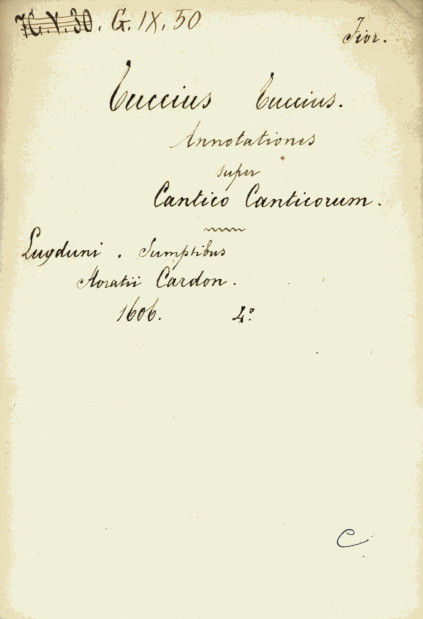 7G.V.30. G.IX.50
Fior.
Tuccius Tuccius.
Annotationes
super
Cantico Canticorum.
Lugduni. Sumptibus
Horatii Cardon.
1606. 4°
C